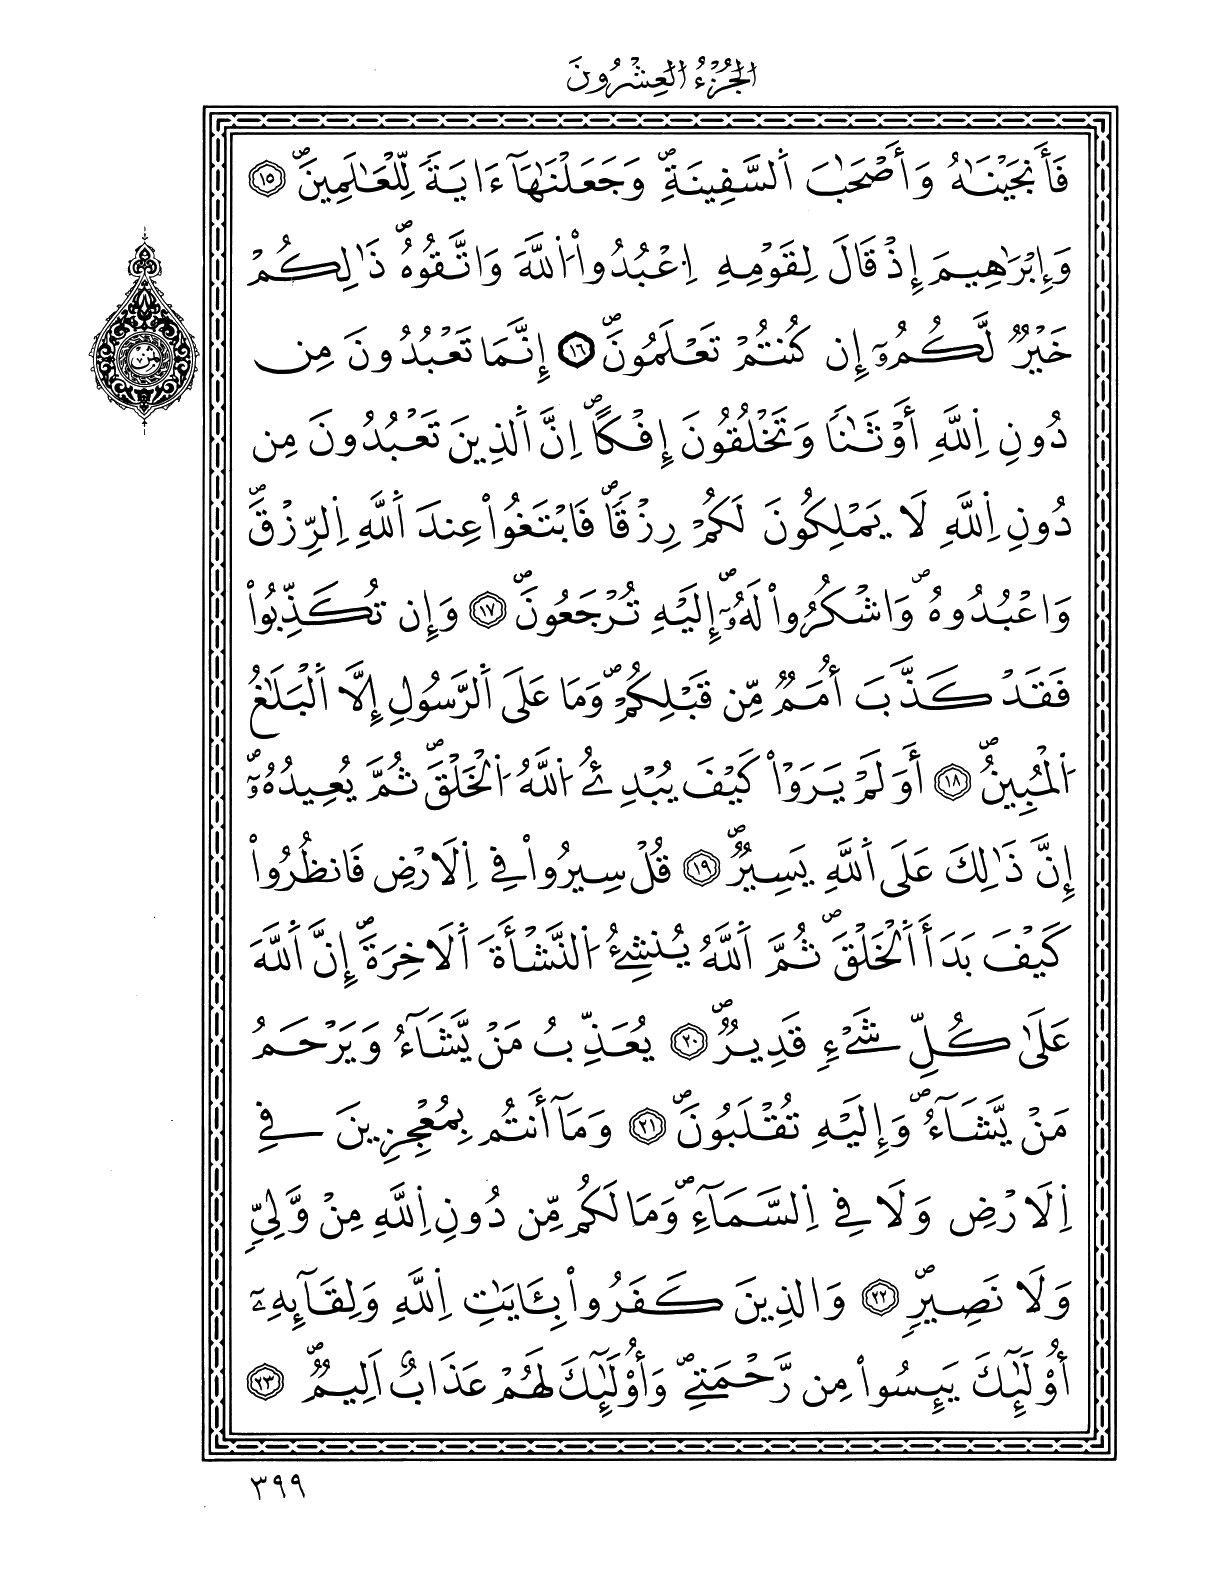 الجُزْءُ العِشْرُونَ
فَأَنجَيْنَٰهُ وَأَصْحَٰبَ اَ۬لسَّفِينَةِۖ وَجَعَلْنَٰهَآ ءَايَةٗ لِّلْعَٰلَمِينَۖ ١٥
وَإِبْرَٰهِيمَ إِذْ قَالَ لِقَوْمِهِ اِ۟عْبُدُواْ اُ۬للَّهَ وَاتَّقُوهُۖ ذَٰلِكُمْ
خَيْرٞ لَّكُمُۥٓ إِن كُنتُمْ تَعْلَمُونَۖ ١٦ إِنَّمَا تَعْبُدُونَ مِن
دُونِ اِ۬للَّهِ أَوْثَٰناٗ وَتَخْلُقُونَ إِفْكاًۖ اِنَّ اَ۬لذِينَ تَعْبُدُونَ مِن
دُونِ اِ۬للَّهِ لَا يَمْلِكُونَ لَكُمْ رِزْقاٗۖ فَابْتَغُواْ عِندَ اَ۬للَّهِ اِ۬لرِّزْقَۖ
وَاعْبُدُوهُۖ وَاشْكُرُواْ لَهُۥٓۖ إِلَيْهِ تُرْجَعُونَۖ ١٧ وَإِن تُكَذِّبُواْ
فَقَدْ كَذَّبَ أُمَمٞ مِّن قَبْلِكُمْۖ وَمَا عَلَى اَ۬لرَّسُولِ إِلَّا اَ۬لْبَلَٰغُ
اُ۬لْمُبِينُۖ ١٨ أَوَلَمْ يَرَوْاْ كَيْفَ يُبْدِئُ اُ۬للَّهُ اُ۬لْخَلْقَۖ ثُمَّ يُعِيدُهُۥٓۖ
إِنَّ ذَٰلِكَ عَلَى اَ۬للَّهِ يَسِيرٞۖ ١٩ قُلْ سِيرُواْ فِي اِ۬لَارْضِ فَانظُرُواْ
كَيْفَ بَدَأَ اَ۬لْخَلْقَۖ ثُمَّ اَ۬للَّهُ يُنشِئُ اُ۬لنَّشْأَةَ اَ۬لَاخِرَةَۖ إِنَّ اَ۬للَّهَ
عَلَىٰ كُلِّ شَےْءٖ قَدِيرٞۖ ٢٠ يُعَذِّبُ مَنْ يَّشَآءُ وَيَرْحَمُ
مَنْ يَّشَآءُۖ وَإِلَيْهِ تُقْلَبُونَۖ ٢١ وَمَآ أَنتُم بِمُعْجِزِينَ فِے
اِ۬لَارْضِ وَلَا فِي اِ۬لسَّمَآءِۖ وَمَا لَكُم مِّن دُونِ اِ۬للَّهِ مِنْ وَّلِيّٖ
وَلَا نَصِيرٖۖ ٢٢ وَالذِينَ كَفَرُواْ بِـَٔايَٰتِ اِ۬للَّهِ وَلِقَآئِهِۦٓ
أُوْلَٰٓئِكَ يَئِسُواْ مِن رَّحْمَتِےۖ وَأُوْلَٰٓئِكَ لَهُمْ عَذَابٌ اَلِيمٞۖ ٢٣
٣٩٩